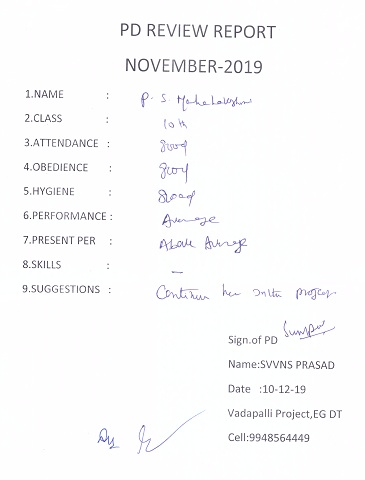 PD REVIEW REPORT
NOVEMBER-2019
1.NAME : P. S. Mahalakshmi
2.CLASS : 10th
3.ATTENDANCE : Good
4.OBEDIENCE : Good
5.HYGIENE : Good
6.PERFORMANCE : Average
7.PRESENT PER : Above Average
8.SKILLS : —
9.SUGGESTIONS : Continue her in the program
Sign.of PD
Name:SVVNS PRASAD
Date :10-12-19
Vadapalli Project,EG DT
Cell:9948564449